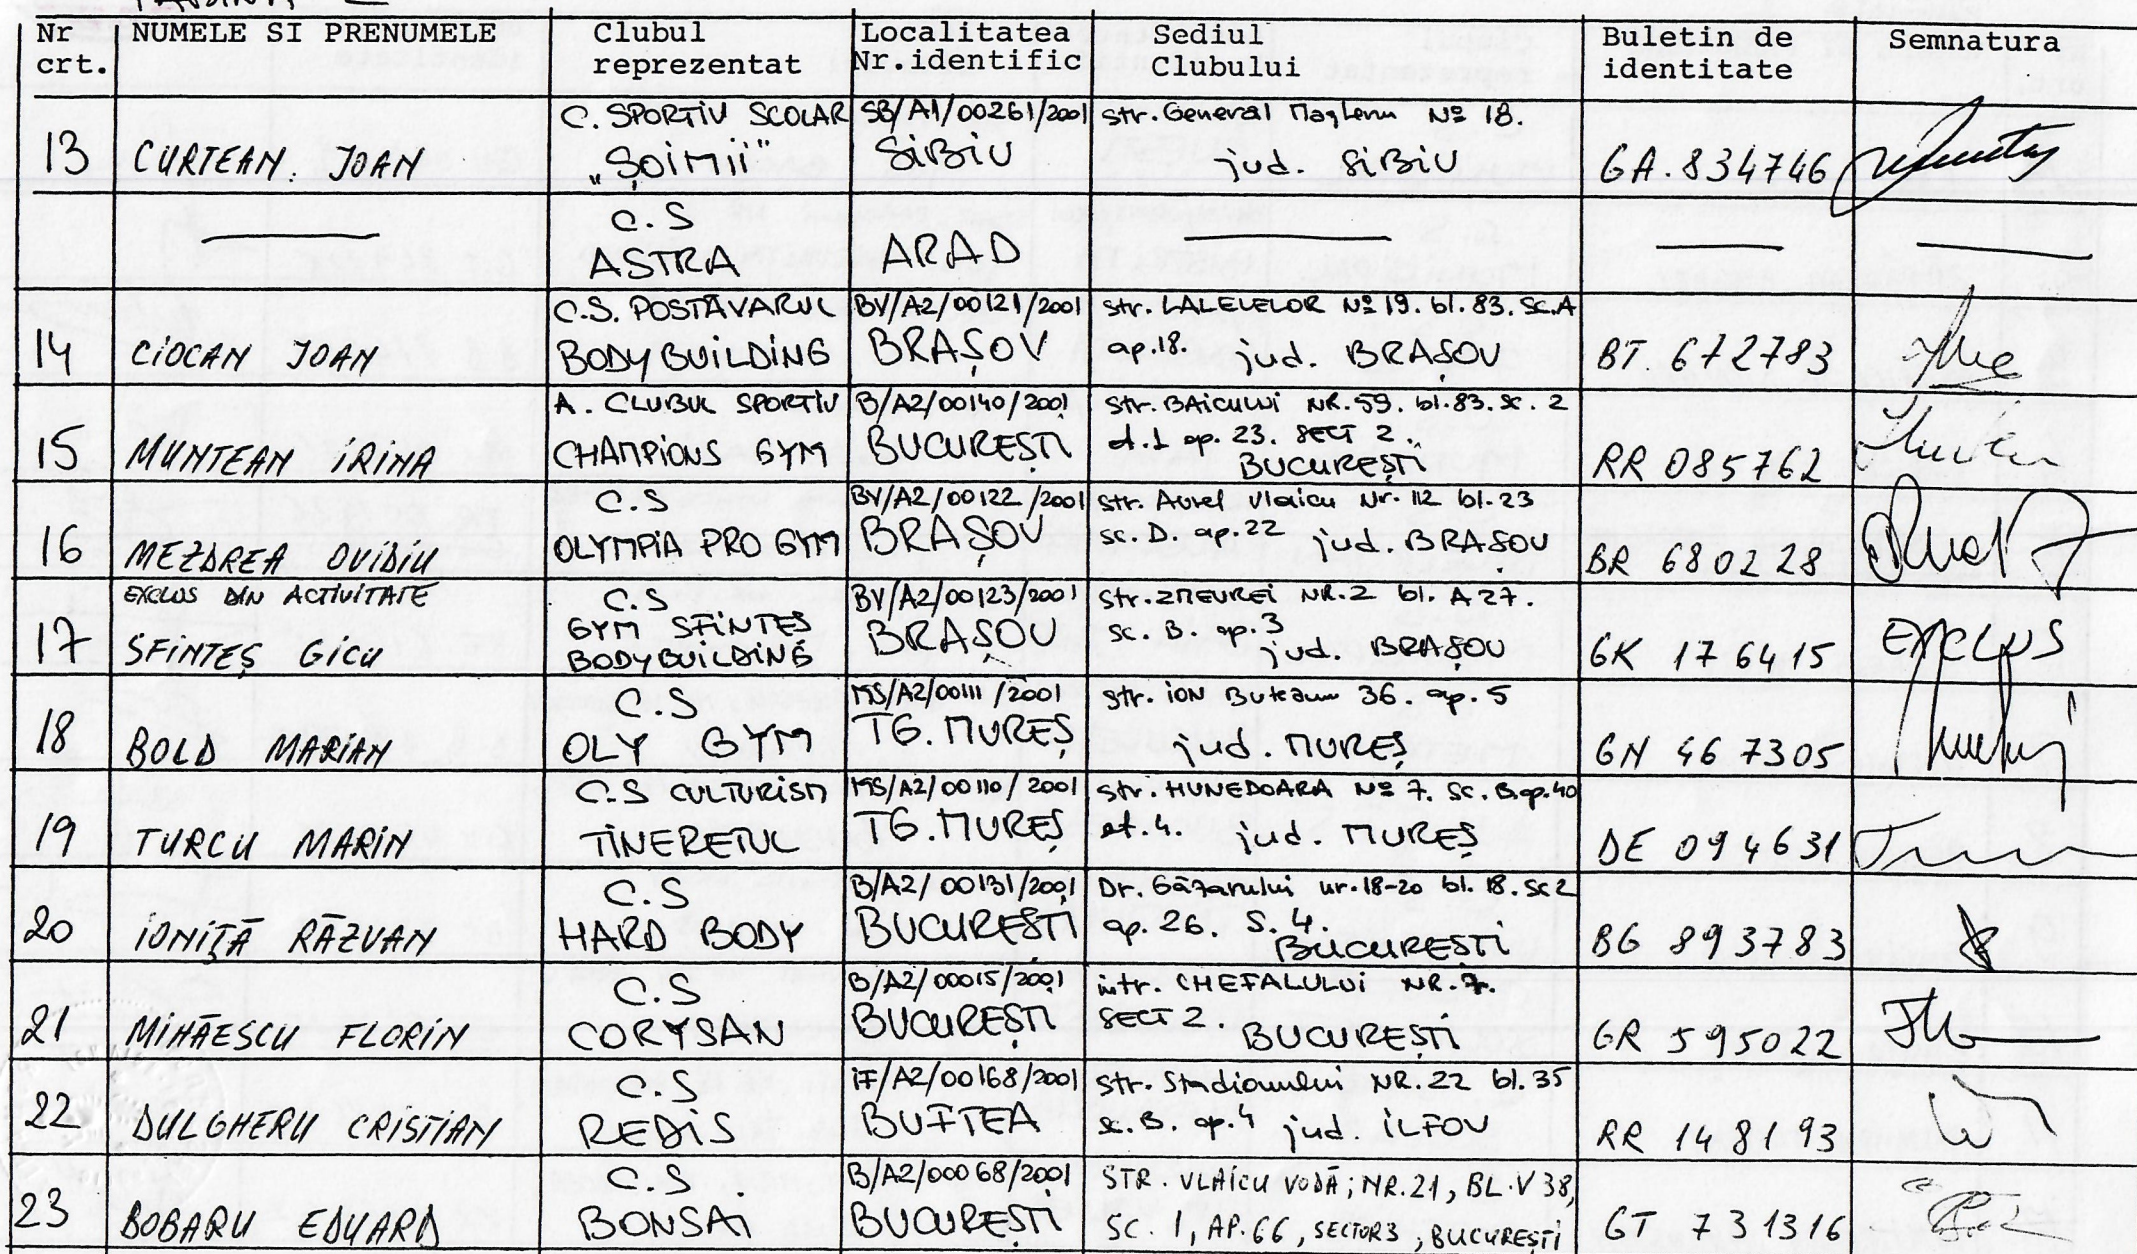 Nr crt. NUMELE SI PRENUMELE Clubul reprezentat Localitatea Nr.identific Sediul Clubului Buletin de identitate Semnatura
13 CURTEAN. JOAN C. SPORTIV SCOLAR „ȘOIMII” SB/A1/00261/2001 SIBIU str. General Magheru Nº 18. jud. SIBIU GA. 834746
C.S ASTRA ARAD
14 CIOCAN JOAN C.S. POSTĂVARUL BODY BUILDING BV/A2/00121/2001 BRAȘOV str. LALELELOR Nº 19. bl. 83. SC.A ap.18. jud. BRAȘOV BT. 672783
15 MUNTEAN IRINA A. CLUBUL SPORTIV CHAMPIONS GYM B/A2/00140/2001 BUCUREȘTI Str. BAICULUI NR.59. bl.83. sc. 2 et.1 ap. 23. SECT 2. BUCUREȘTI RR 085762
16 MEZDREA OVIDIU C.S OLYMPIA PRO GYM BV/A2/00122/2001 BRAȘOV str. Aurel Vlaicu Nr. 112 bl.23 sc. D. ap.22 jud. BRAȘOV BR 680228
17 EXCLUS DIN ACTIVITATE SFINTEȘ GICU C.S GYM SFINTEȘ BODYBUILDING BV/A2/00123/2001 BRAȘOV Str. ZMEUREI NR.2 bl. A 27. sc. B. ap.3 jud. BRAȘOV GK 176415 EXCLUS
18 BOLD MARIAN C.S OLY GYM MS/A2/00111/2001 TG. MUREȘ str. ION Buteanu 36. ap. 5 jud. MUREȘ GN 467305
19 TURCU MARIN C.S CULTURISM TINERETUL MS/A2/00110/2001 TG. MUREȘ str. HUNEDOARA Nº 7. SC. B. ap.40 et.4. jud. MUREȘ DE 094631
20 IONIȚĂ RĂZVAN C.S HARD BODY B/A2/00131/2001 BUCUREȘTI Dr. Găzarului nr.18-20 bl. 18. Sc 2 ap. 26. S. 4. BUCUREȘTI BG 893783
21 MIHĂESCU FLORIN C.S CORYSAN B/A2/00015/2001 BUCUREȘTI intr. CHEFALULUI NR.7. SECT 2. BUCUREȘTI GR 595022
22 DULGHERU CRISTIAN C.S REDIS IF/A2/00168/2001 BUFTEA str. Stadionului NR.22 bl.35 sc. B. ap.4 jud. ILFOV RR 148193
23 BOBARU EDUARD C.S. BONSAI B/A2/00068/2001 BUCUREȘTI STR. VLAICU VODĂ; NR.21, BL.V 38, SC. 1, AP.66, SECTOR3, BUCUREȘTI GT 731316